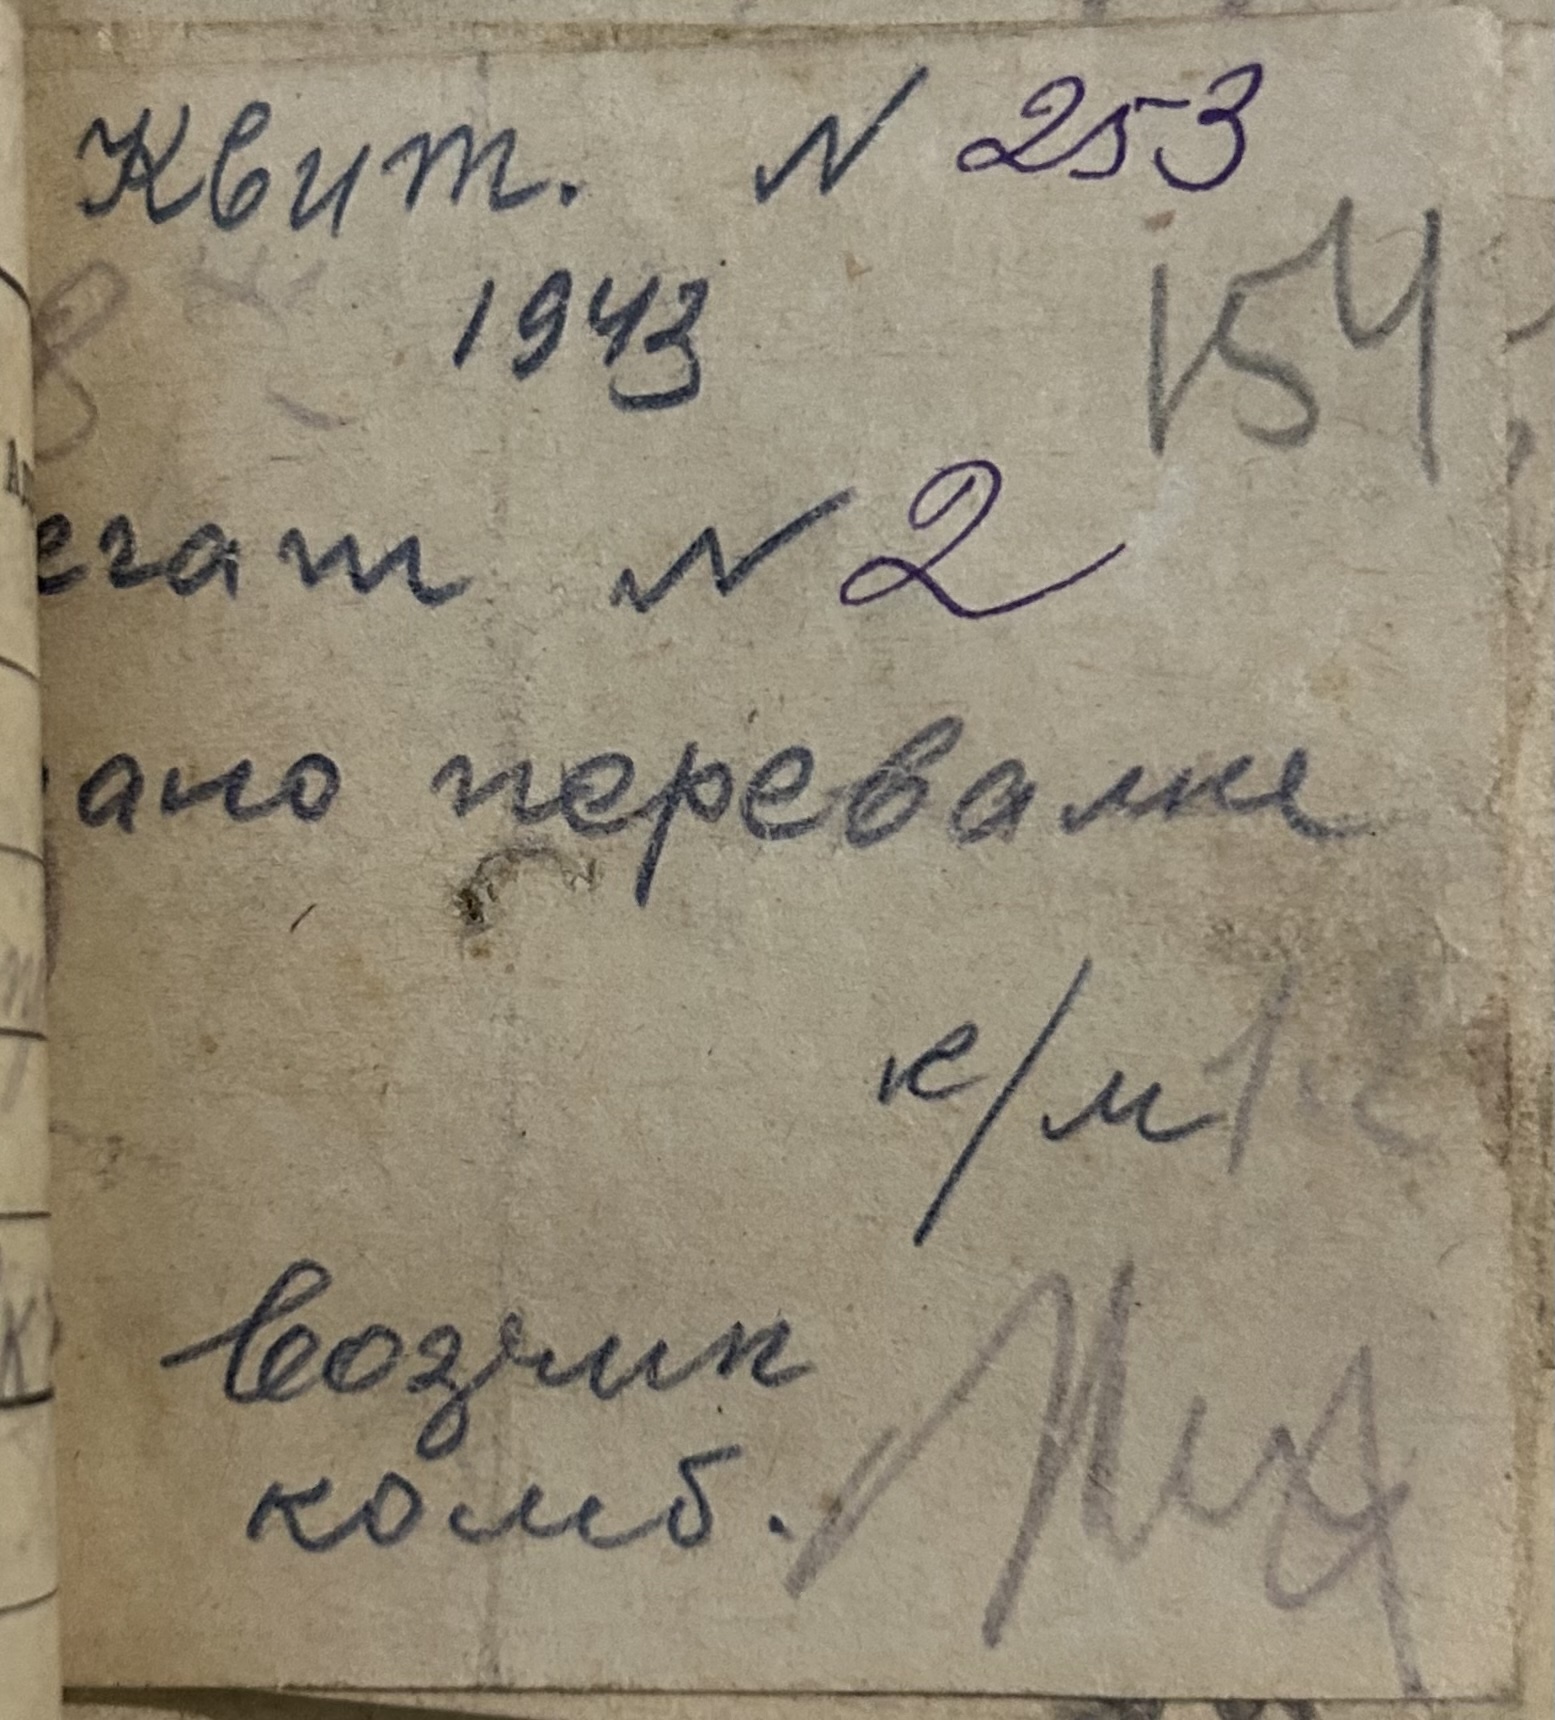 Квит. N 253
1943
154
егат N 2
ано перевалке
к/м
возчик
комб.